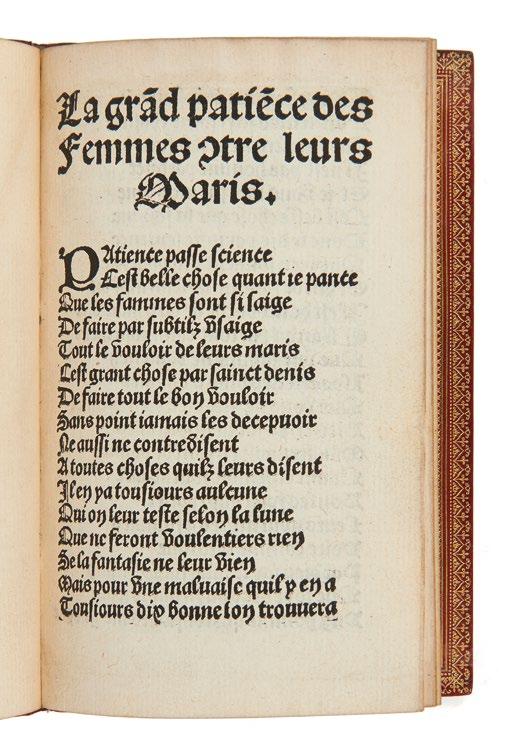 La grãd patiẽce des
Femmes ꝯtre leurs
Maris.
PAtience passe science
Cest belle chose quant ie pance
Que les fammes sont si saige
De faire par subtilz vsaige
Tout le vouloir de leurs maris
Cest grant chose par sainct denis
De faire tout le bon vouloir
Sans point iamais les decepuoir
Ne aussi ne contredisent
A toutes choses quilz leurs disent
Il en ya tousiours aulcune
Qui on leur teste selon la lune
Que ne feront voulentiers rien
Se la fantasie ne leur vien
Mais pour vne maluaise quil y en a
Tousiours dix bonne lon trouuera